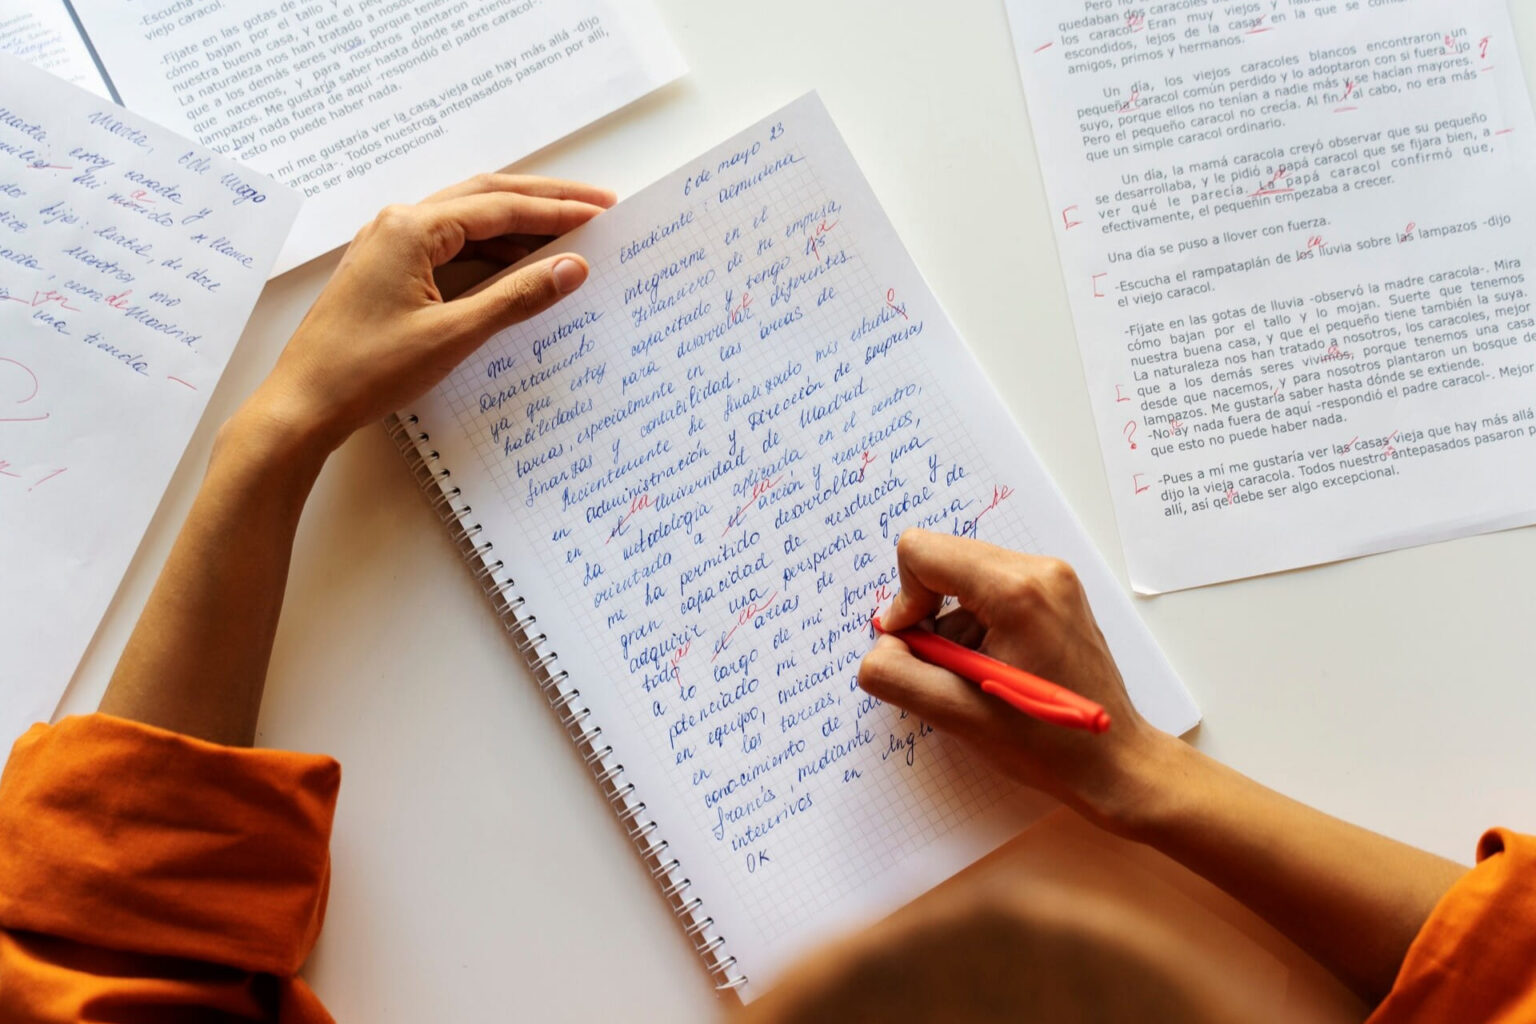 -Escucha
viejo caracol.
-Fíjate en las gotas de
cómo bajan por el tallo y
nuestra buena casa, y que el peq
La naturaleza nos han tratado a nosotr
que a los demás seres vivos, porque tene
que nacemos, y para nosotros plantaron
lampazos. Me gustaría saber hasta dónde se extiende.
-No hay nada fuera de aquí -respondió el padre caracol-.
esto no puede haber nada.
a mí me gustaría ver la casa vieja que hay más allá -dijo
caracola-. Todos nuestros antepasados pasaron por allí,
be ser algo excepcional.
Marta, 6 de mayo
Marta. estoy casada y
Mi marido se llama
a
dos hijos: Isabel, de doce
Nosotros no
cerca de Madrid.
en
una tienda
6 de mayo 23
Estudiante: Almudena
Me gustaría integrarme en el
Departamento Financiero de su empresa,
ya que estoy capacitado y tengo los
a
habilidades para desarrollar diferentes
e
tareas, especialmente en las áreas de
finanzas y contabilidad.
Recientemente he finalizado mis estudios
o
en administración y Dirección de empresas
en el Universidad de Madrid
la
La metodología aplicada en el centro,
orientada a el acción y resultados,
la
me ha permitido desarrollar una
gran capacidad de resolución y
adquirir una perspectiva global de
todo el áreas de la empresa. hoy
as
la
he
a lo largo de mi formac
potenciado mi espíritu
en equipo, iniciativa
en las tareas, a
conocimiento de idi
francés, mediante
intensivos en inglé
OK
quedaban dos caracoles
los caracol. Eran muy viejos y
escondidos, lejos de la casas en la que se
amigos, primos y hermanos.
Un día, los viejos caracoles blancos encontraron un
pequeña caracol común perdido y lo adoptaron con si fuera ijo
suyo, porque ellos no tenían a nadie más y se hacían mayores.
Pero el pequeño caracol no crecía. Al fin al cabo, no era más
que un simple caracol ordinario.
Un día, la mamá caracola creyó observar que su pequeño
se desarrollaba, y le pidió a papá caracol que se fijara bien, a
ver qué le parecía. La papá caracol confirmó que,
efectivamente, el pequeñín empezaba a crecer.
Una día se puso a llover con fuerza.
-Escucha el rampataplán de los lluvia sobre las lampazos -dijo
la
el viejo caracol.
-Fíjate en las gotas de lluvia -observó la madre caracola-. Mira
cómo bajan por el tallo y lo mojan. Suerte que tenemos
nuestra buena casa, y que el pequeño tiene también la suya.
La naturaleza nos han tratado a nosotros, los caracoles, mejor
que a los demás seres vivimos, porque tenemos una casa
desde que nacemos, y para nosotros plantaron un bosque de
lampazos. Me gustaría saber hasta dónde se extiende.
? -No ay nada fuera de aquí -respondió el padre caracol-. Mejor
que esto no puede haber nada.
-Pues a mí me gustaría ver las casas vieja que hay más allá
dijo la vieja caracola. Todos nuestro antepasados pasaron p
allí, así qe debe ser algo excepcional.